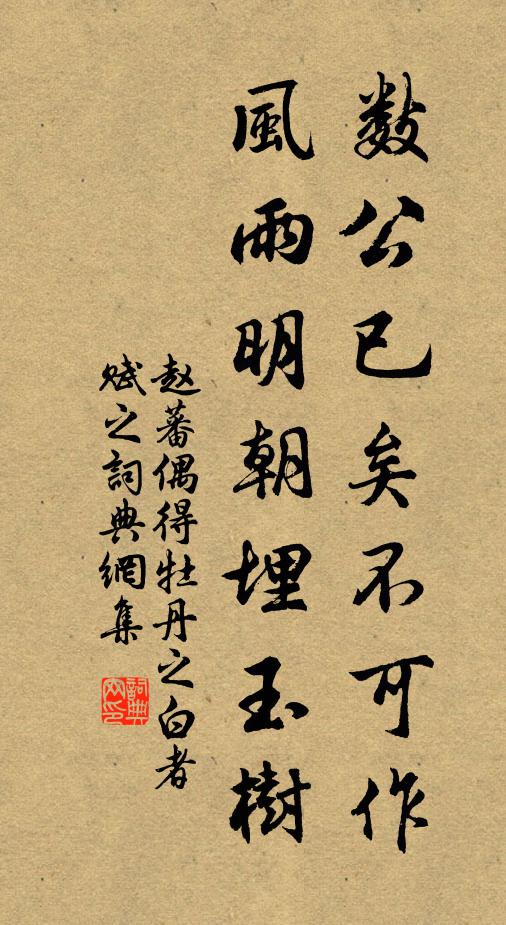 数公已矣不可作
風雨明朝埋玉樹
赵蕃偶得牡丹之白者
赋之詞典網集
詞典
网印